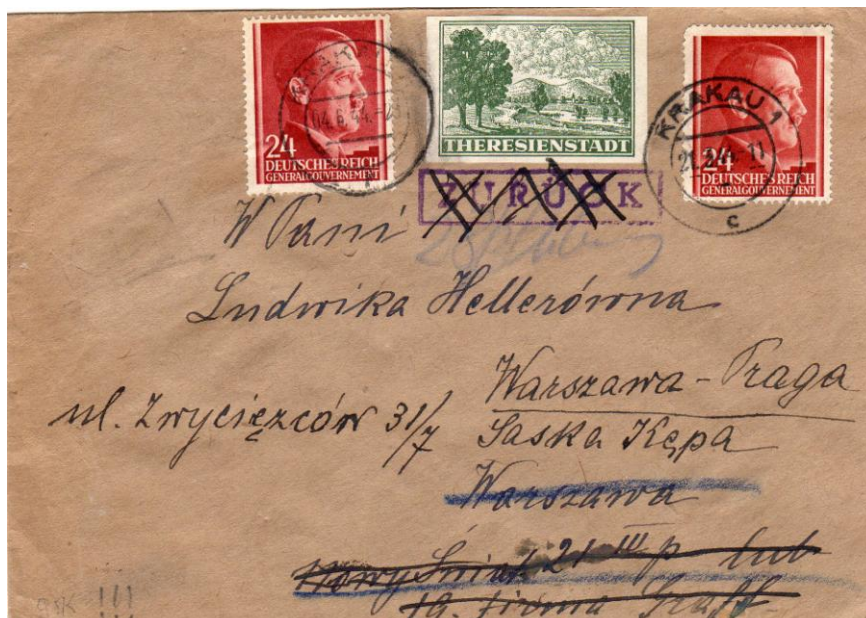 KRAKAU
04.6.44.-
24
DEUTSCHES REICH
GENERALGOUVERNEMENT
THERESIENSTADT
KRAKAU 1
c
24
DEUTSCHES REICH
GENERALGOUVERNEMENT
ZURÜCK
W Pani
Ludwika Hellerówna
Warszawa-Praga
ul. Zwycięzców 31/7
Saska Kępa
Warszawa
Nowy Świat 21 III p lub